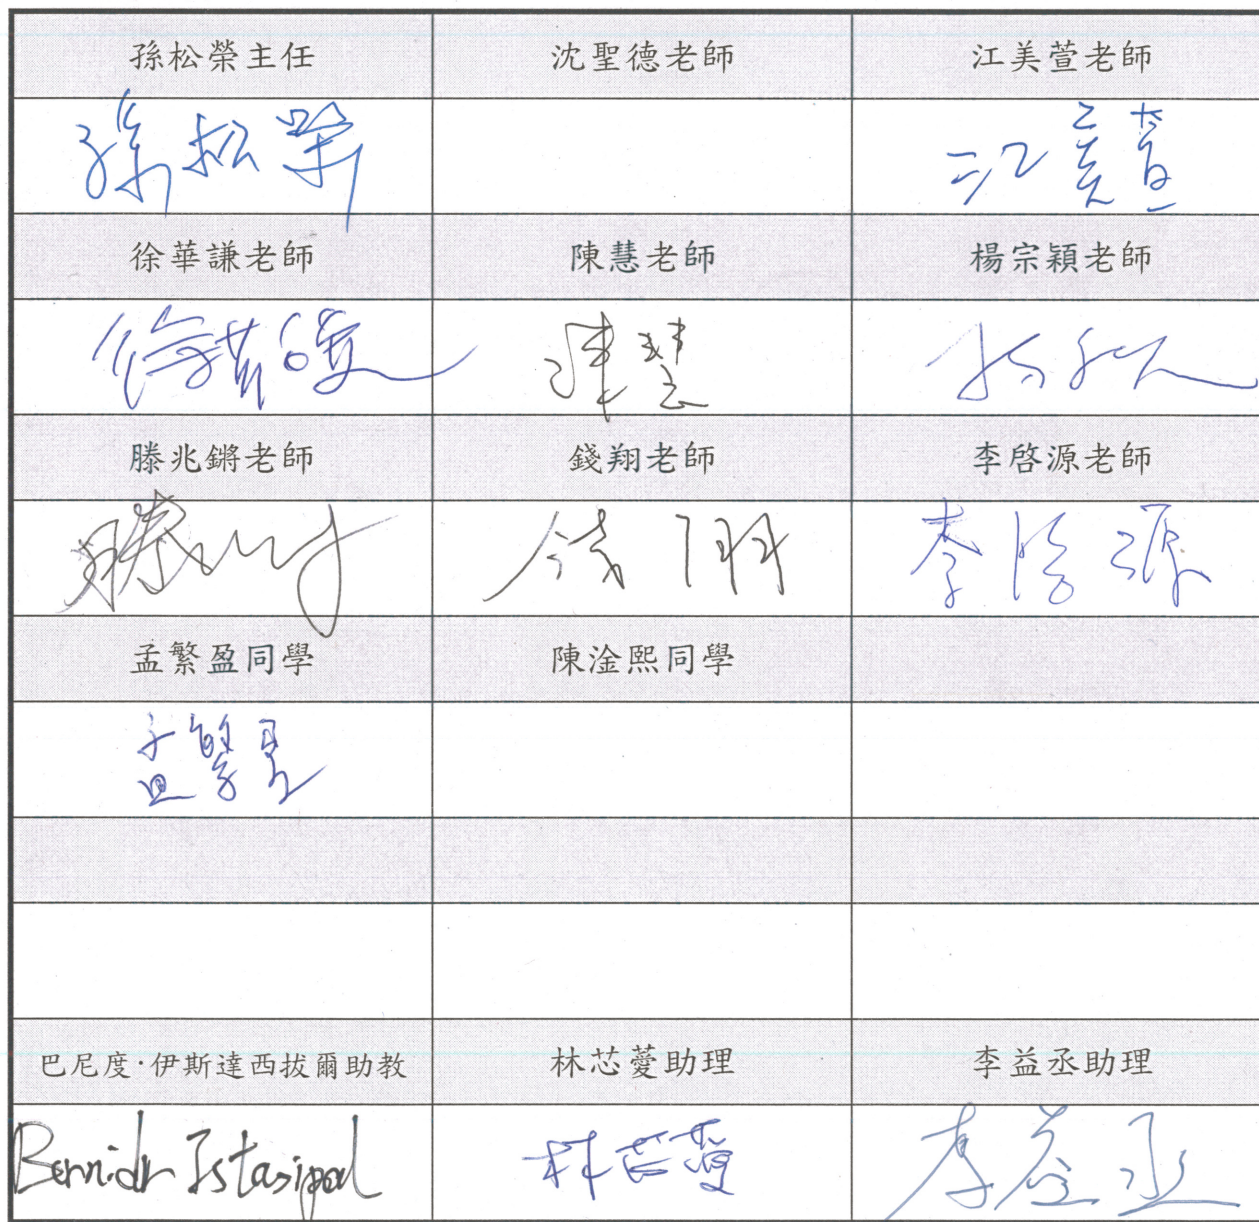 孫松榮主任 沈聖德老師 江美萱老師
孫松榮 江美萱
徐華謙老師 陳慧老師 楊宗穎老師
徐華謙 陳慧
滕兆鏘老師 錢翔老師 李啓源老師
滕 錢翔 李啓源
孟繁盈同學 陳淦熙同學
孟繁盈
巴尼度·伊斯達西拔爾助教 林芯薆助理 李益丞助理
Bernidu Istasipal 林芯薆 李益丞